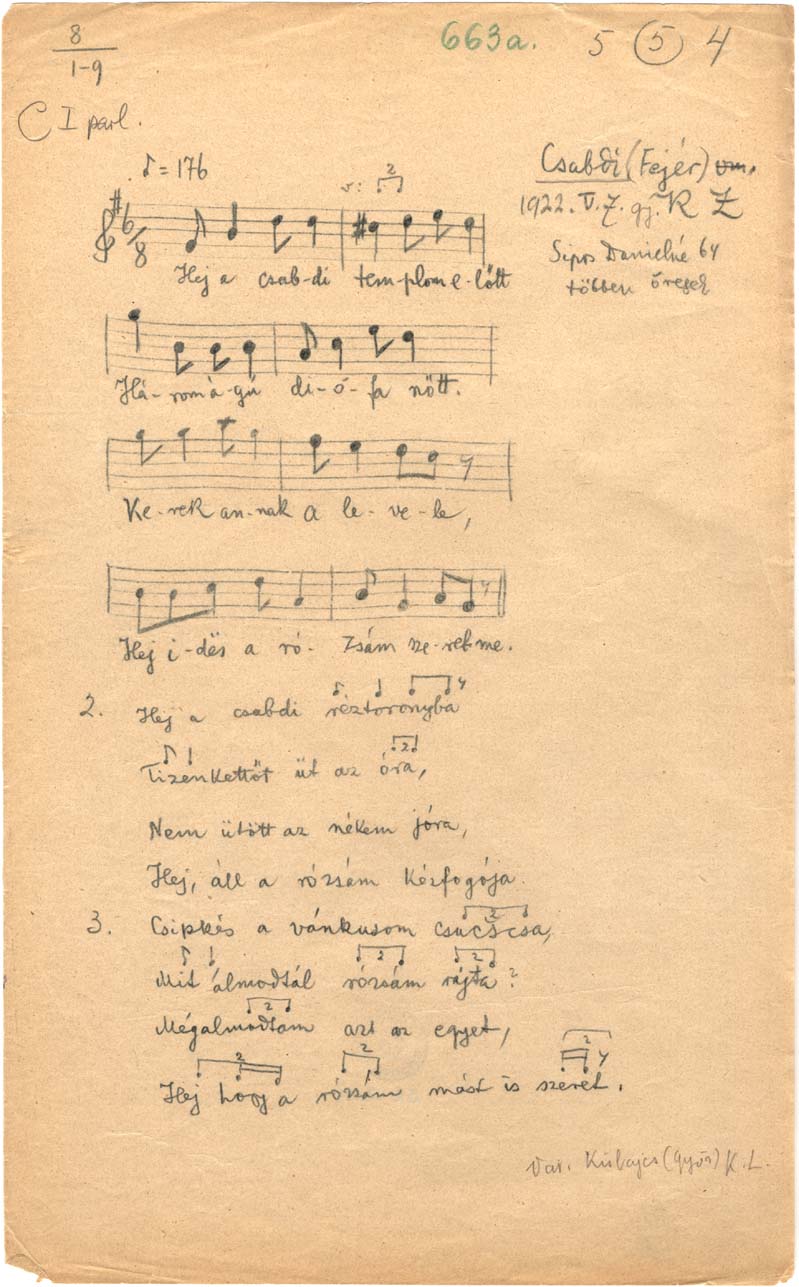 8
1-9
663a.
5 (5) 4
C I parl.
♪ = 176
Csabdi (Fejér) vm.
1922. V. 7. gy. K Z
Sipos Danielné 64
többen öregek
v: 2
6/8
Hej a csab-di tem-plom e-lőtt
Há-rom á-gú di-ó-fa nőtt.
Ke-rek an-nak a le-ve-le,
Hej i-dës a ró-zsám sze-relme.
2. Hej a csabdi réztoronyba
2
Tizenkettőt üt az óra,
Nem ütött az nékem jóra,
Hej, áll a rózsám kézfogója.
2
3. Csipkés a vánkusom csucscsa,
2 2
Mit álmodtál rózsám rajta?
2
Mégálmodtam azt az egyet,
2 2 2
Hej hogy a rózsám mást is szeret.
Var. Kisbajcs (Győr) K. L.